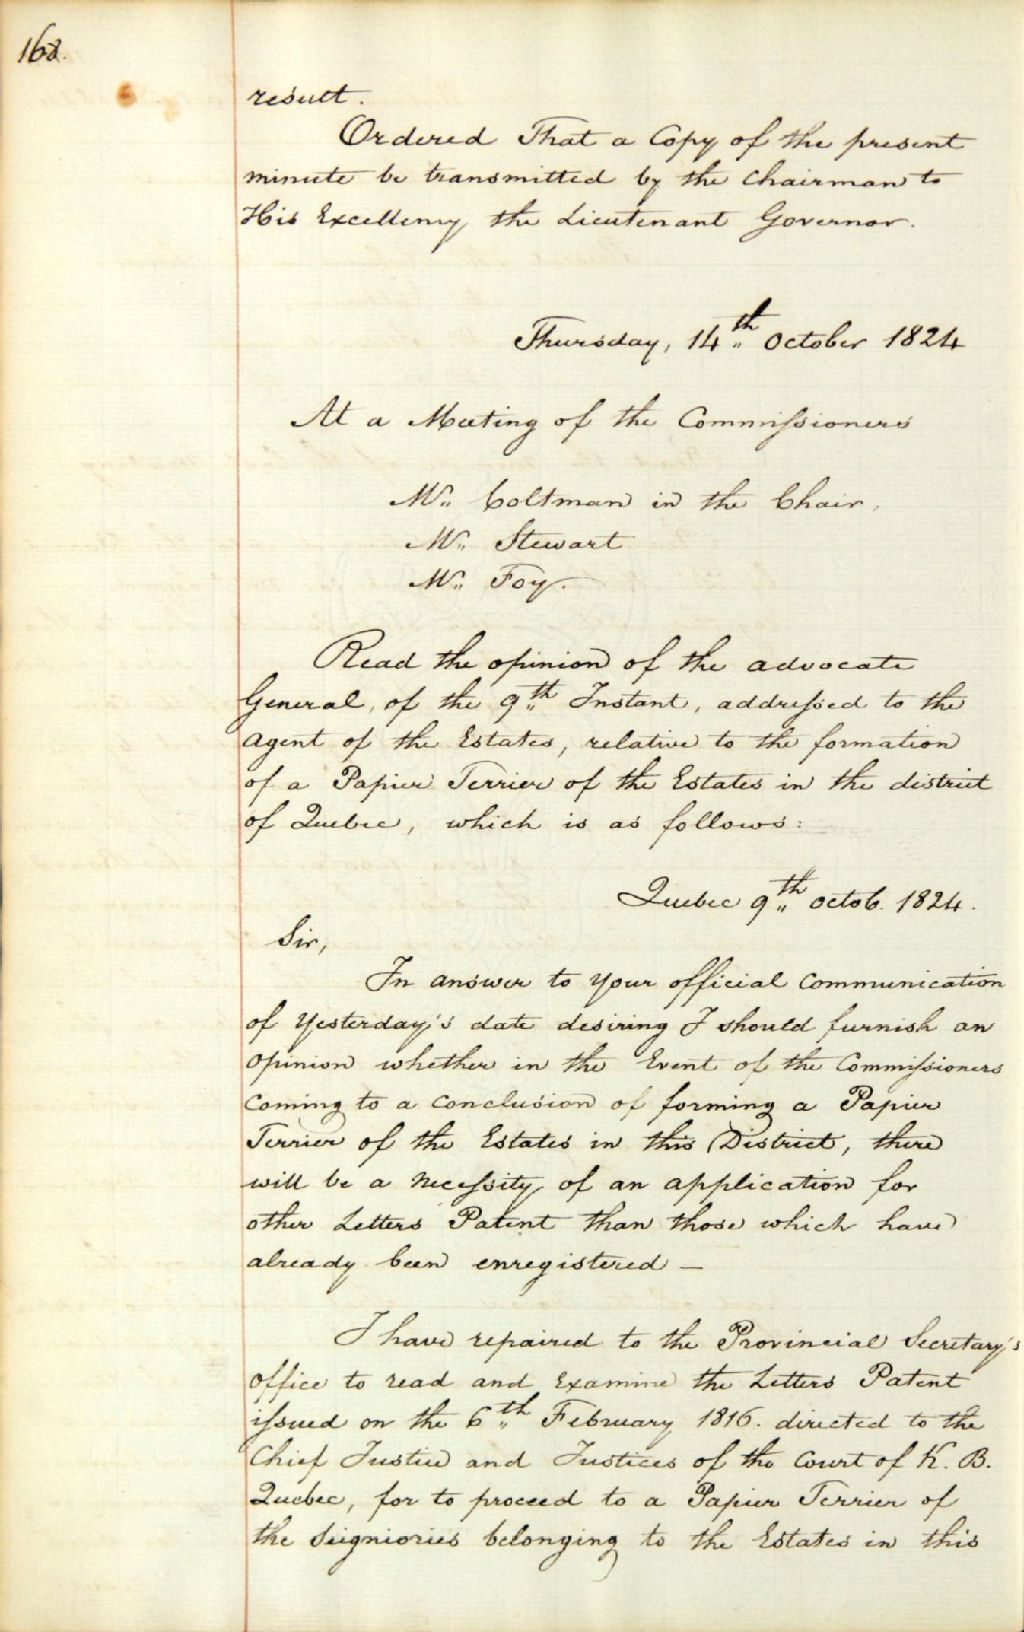 168.
result.
Ordered That a Copy of the present
minute be transmitted by the Chairman to
His Excellency the Lieutenant Governor.
Thursday, 14th October 1824
At a Meeting of the Commissioners
Mr. Coltman in the Chair,
Mr. Stewart
Mr. Foy.
Read the opinion of the advocate
General, of the 9th Instant, addressed to the
agent of the Estates, relative to the formation
of a Papier Terrier of the Estates in the district
of Quebec, which is as follows:
Quebec 9th Octob. 1824.
Sir,
In answer to your official Communication
of Yesterday's date desiring I should furnish an
opinion whether in the Event of the Commissioners
coming to a conclusion of forming a Papier
Terrier of the Estates in this District, there
will be a necessity of an application for
other Letters Patent than those which have
already been enregistered —
I have repaired to the Provincial Secretary's
office to read and Examine the Letters Patent
issued on the 6th February 1816. directed to the
Chief Justice and Justices of the Court of K. B.
Quebec, for to proceed to a Papier Terrier of
the Seigniories belonging to the Estates in this